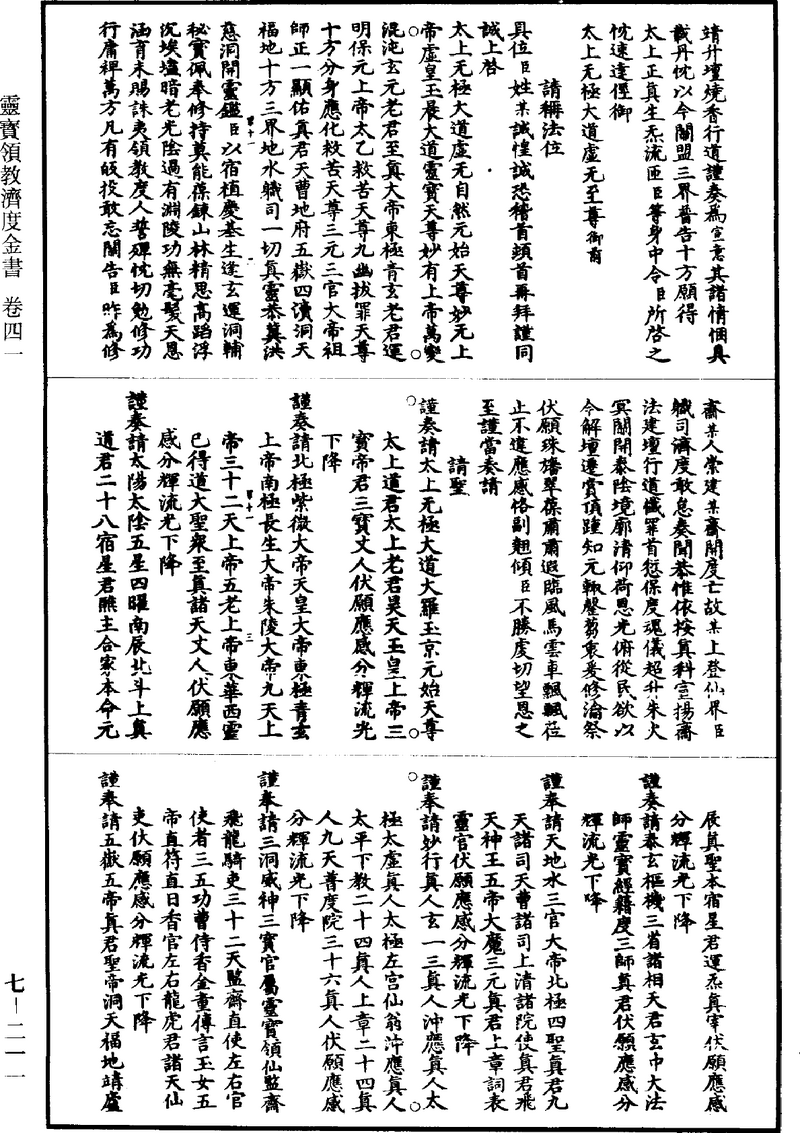 靖升壇燒香行道謹奏為宣意其諸情悃具
載丹忱以今關盟三界普告十方願得
太上正真生炁流匝臣等身中令臣所啓之
忱速達徑御
太上无極大道虛无至尊御前
請稱法位
具位臣姓某誠惶誠恐稽首頓首再拜謹同
誠上啓
太上无極大道虛无自然元始天尊妙无上
帝虛皇玉晨大道靈寶天尊妙有上帝萬變
混沌玄元老君至真大帝東極青玄老君運
明保元上帝太乙救苦天尊九幽拔罪天尊
十方分身應化救苦天尊三元三官大帝祖
師正一顯佑真君天曹地府五嶽四瀆洞天
福地十方三界地水職司一切真靈恭冀洪
慈洞開靈鑑臣以宿植慶基生逢玄運洞輔
秘寶佩奉修持莫能葆鍊山林精思高蹈浮
沉埃壒暗老光陰過有淵陵功無毫髮天恩
涵育未賜誅夷領教度人誓殫忱切勉修功
行庸裨萬方凡有皈投敢忘關告臣昨為修
齋某人崇建某齋關度亡故某上登仙界臣
職司濟度敢怠奏聞恭惟依按真科宣揚齋
法建壇行道懺罪首愆保度魂儀超升朱火
冥關開泰陰境廓清仰荷恩光俯從民欲以
今解壇違賓頂踵知元輒罄芻衷爰修淪祭
伏願珠旛翠葆肅肅遐臨風馬雲車飄飄莅
止不違應感恪副翹傾臣不勝虔切望恩之
至謹當奏請
請聖
謹奏請太上无極大道大羅玉京元始天尊
太上道君太上老君昊天玉皇上帝三
寶帝君三寶丈人伏願應感分輝流光
下降
謹奏請北極紫微大帝天皇大帝東極青玄
上帝南極長生大帝朱陵大帝九天上
帝三十二天上帝五老上帝東華西靈
已得道大聖衆至真諸天丈人伏願應
感分輝流光下降
謹奏請太陽太陰五星四曜南辰北斗上真
道君二十八宿星君醮主合家本命元
辰真聖本宿星君運炁真宰伏願應感
分輝流光下降
謹奏請泰玄樞機三省諸相天君玄中大法
師靈寶經籍度三師真君伏願應感分
輝流光下降
謹奉請天地水三官大帝北極四聖真君九
天諸司天曹諸司上清諸院使真君飛
天神王五帝大魔三元真君上章詞表
靈官伏願應感分輝流光下降
謹奉請妙行真人玄一三真人沖應真人太
極太虛真人太極左宮仙翁沖應真人
太平下教二十四真人上章二十四真
人九天普度院三十六真人伏願應感
分輝流光下降
謹奉請三洞威神三寶官屬靈寶領仙監齋
飛龍騎吏三十二天監齋直使左右官
使者三五功曹侍香金童傳言玉女五
帝直符直日香官左右龍虎君諸天仙
吏伏願應感分輝流光下降
謹奉請五嶽五帝真君聖帝洞天福地靖廬
靈寶領教濟度金書 卷四一
七－二一一